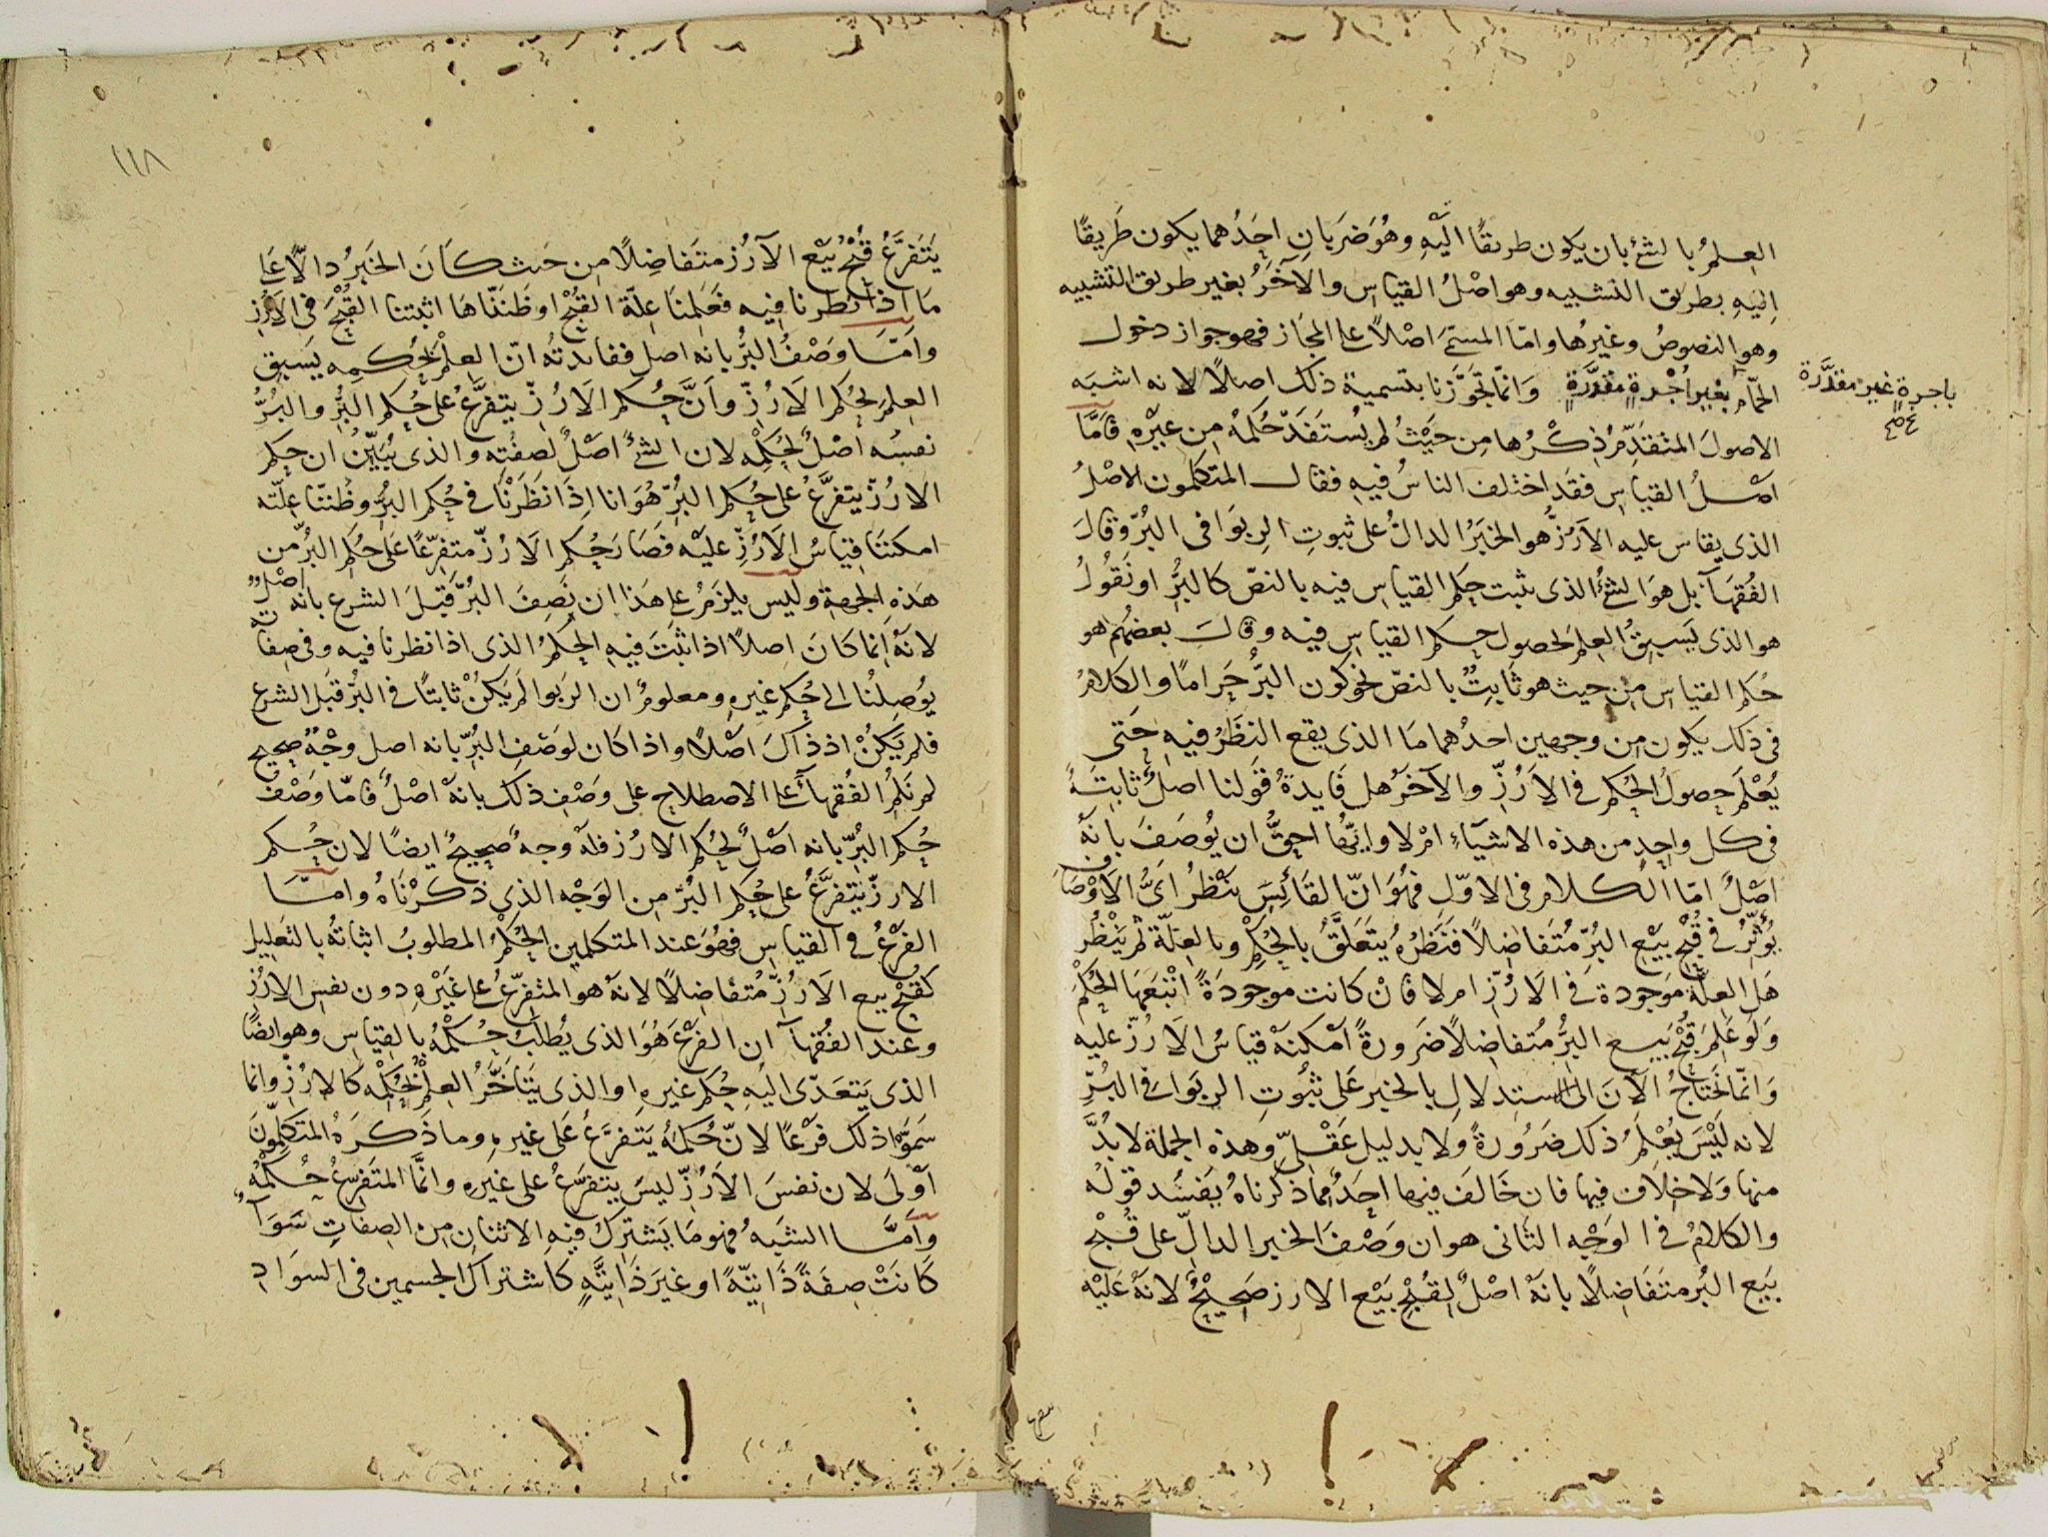 العِلمُ بالشئ بان يكون طريقًا اليْهِ وهُوَ ضَرَبانِ احَدُهما يكون طَريقًا
اِليْهِ بطريق التشبيه وهو اصْلُ القياسِ والآخَرُ بغير طريق التشبيه
وهو النصوصُ وغيرُها وامّا المستمَى اصْلاً على المجَاز فهو جواز دخول
الحمّام بغير اُجْرةٍ مقدَّرةٍ وَانمّا تجَوّزنا بتسمية ذلك اصلاً لانه اشبَه
باجرةٍ غير مقدَّرة صح
الاصولَ المتقدِّمُ ذِكْرُها مِن حيَثُ لم يُستَفَدْ حُكمهُ مِن غيْرِه فامَّا
اصْلُ القياسِ فقَد اختلف الناسُ فيهِ فقال المتكلمون الاصْلُ
الذى يقاس عليه الاَرُزُّ هو الخبَرُ الدالُ على ثبوتِ الرِبوَا فى البُرّ وقالَ
الفُقهآء بل هوَ الشئُ الذى يثبت حكم القياسِ فيه بالنصّ كالبُرِّ او نقُولُ
هو الذى يَسبِقُ العِلمَ لحصولِ حكم القياسِ فيه وقالَ بعضهُم هو
حُكم القياس مِن حيث هو ثَابِتٌ بالنصّ نحو كون البُرِّ حَرامًا والكلامُ
فى ذلك يكون مِن وجهين احدُهما مَا الذى يقع النظَرُ فيهِ حَتى
يُعْلَم حصولُ الحُكم فى الاَرُزِّ والآخَرُ هل فَايدةُ قَولنا اصلٌ ثابتَةٌ
فى كل واحِدٍ من هذه الاشيَآءِ امْ لا وايّهُا احقُّ ان يُوصَفَ بانّهُ
اصْلٌ امّا الكلام فى الاوّل فهُوَ انّ القَائِسَ يَنْظرُ اىُّ الاَوْصَافِ
يُؤَثِّرُ فى قُبْحِ بيْعِ البُرِّ مُتَفاضِلاً فنَظَرُهُ يتَعَلَقُ بالحُكْمِ وبالعِلّة ثم يَنْظُر
هَلِ العِلّةُ مَوجُودة فى الاَرُزّ ام لا فانْ كانت موجودَةً اتْبَعَهَا الحُكْمَ
وَلَو عَلِمَ قُبْحَ بَيعِ البُرِّ مُتفاضِلاً ضَرورةً اَمكنَهُ قياسُ الاَرُزّ عليه
وَانمّا نحَتاجُ الآنَ الى الاستدلالِ بالخبر عَلى ثُبُوتِ الربوَا فى البُرِّ
لانه لَيْسَ يُعْلمُ ذلك ضَرُورةً ولا بدليل عَقْلىٍّ وهذه الجملة لا بُدَّ
منها وَلا خِلافَ فيها فان خَالفَ فيها احَدٌ فما ذكرناهُ يفَسُد قولهُ
والكلامُ فى الوَجْه الثانى هو ان وَصْفَ الخبر الدالِّ على قُبْحِ
بَيع البُر متَفَاضِلاً بانهَ اصْلٌ لِقُبْحِ بَيْع الارز صَحِيْحٌ لانهَ عَليْه
١١٨
يَتَفرَّعُ قُبْحُ بَيْع الاَرُز متَفاضِلاً مِن حَيث كَانَ الخبَرُ دالاً عَلى
مَا اِذا نظرنا فيه فعَلِمنَا عِلّة القبْحِ او ظَننّاهَا اثبتنا القُبْحَ فى الاَرُزِ
وامّا وَصْفُ البُرِّ بانه اصل ففائدتُه انّ العِلْم بحُكمِه يَسبق
العِلمَ بحُكم الاَرُزِّ واَنَّ حُكم الاَرُزِّ يتفرَّعُ على حُكم البُرِّ والبُرُّ
نفسُه اصْلٌ لحُكِمْه لان الشئَ اصْلٌ لصفتِه والذى يُبَيّنُ ان حكم
الارُزّ يتفرَّعُ على حُكم البُرِّ هُوَ انا اِذَا نَظَرْنَا فى حُكم البُرِّ وظُننّا عِلّته
امكننَا قِياسُ الاَرُزِّ عليْه فصَارَ حُكم الاَرُزّ متفرِّعًا عَلى حكم البُرِّ من
هَذه الجهةِ وليس يلزَمُ على هَذا ان نَصِفَ البُرَّ قبْلَ الشرع بانه اصْلٌ
لانهُ اِنما كانَ اصلاً اذا ثبَتَ فيهِ الحكمُ الذى اذا نظرنا فيه وفى صِفاته
يُوصِلنُا الى حُكم غيرهِ ومعلومٌ ان الرَبوا لَم يَكنْ ثابتًا فى البُرِّ قبَل الشرع
فلم يَكُنْ اذ ذاكَ اصْلاً واذا كان لوَصْفِ البُرِّ بانه اصل وجْهٌ صحيح
لم نلُمِ الفُقهآءَ على الاصطلاح على وَصْفِ ذلك بانهَ اصْلٌ فامّا وَصْفُ
حُكم البُرِّ بانه اَصْلٌ لحُكم الارُز فلهَ وجهٌ صَحيحٌ ايضًا لان حُكم
الارزّ يتفرَّعُ على حُكم البُرِّ مِن الوَجْه الذى ذكرْنَاهُ وامّا
الفَرْعُ فى القياسِ فهُوَ عند المتكلمين الحُكْمُ المطلوبُ اثباتُه بالتعليل
كقُبْحِ بيع الاَرُزِّ مُتَفاضِلاً لانهُ هو المتفرّعُ على غَيْرِهِ دون نفس الارُزِ
وعند الفُقهآء ان الفَرْعَ هُوَ الذى يُطلَبُ حُكْمُهُ بالقياسِ وهو ايضًا
الذى يَتعَدّى اليْهِ حُكم غيرهِ او الذى يَتَأخَّرُ العِلْمُ بحُكْمِه كالارُزِّ وانما
سَمَّوْا ذلك فَرْعًا لانّ حُكمَهُ يَتفرَّعُ عَلى غيرهِ وما ذَكرَهُ المتكلِّمُونَ
اَوْلَى لان نفسَ الاَرُزِّ ليسَ يتفرَّعُ على غيَرهِ وانمَّا المتَفرِّعُ حُكمُهُ
وامَّا الشَبَهُ فهو مَا يَشترِكُ فيْهِ الاثنانِ مِن الصِفاتِ سَوَآءٌ
كَانَتْ صِفَةً ذَاتيّةً او غيَر ذَاتيَّةٍ كاشتراك الجسمين فى السوَادِ